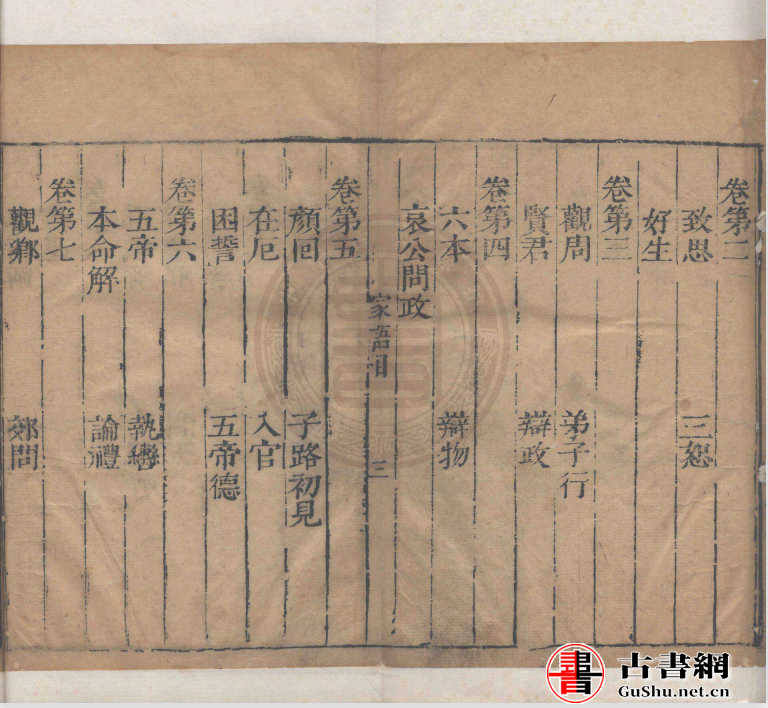 卷第二
致思 三恕
好生
卷第三
觀周 弟子行
賢君 辯政
卷第四
六本 辯物
哀公問政
家語目 三
卷第五
顏回 子路初見
在厄 入官
困誓 五帝德
卷第六
五帝 執轡
本命解 論禮
卷第七
觀鄉 郊問
古書網
GuShu.net.cn